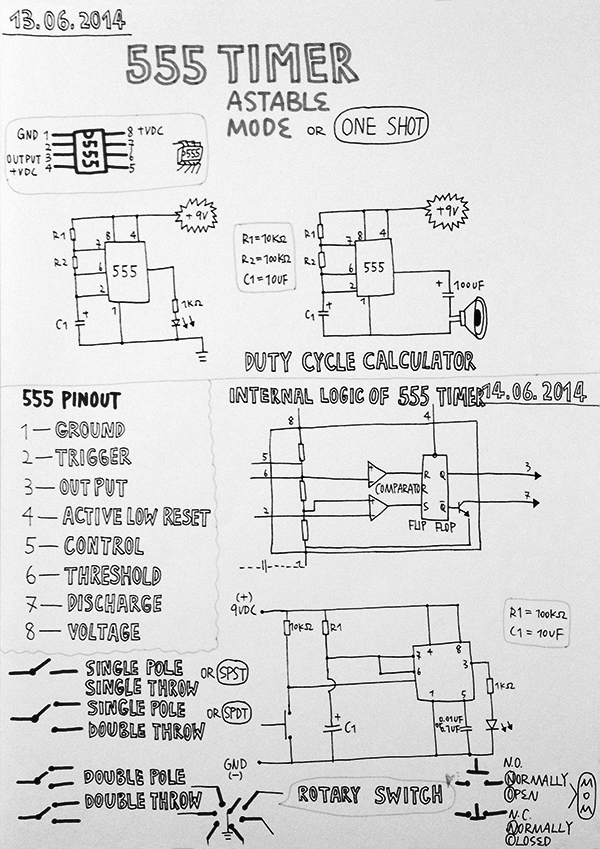 13.06.2014
555 TIMER
ASTABLE
MODE OR ONE SHOT
GND 1
2
OUTPUT 3
+VDC 4
555
8 +VDC
7
6
5
555
+9V
R1
R2
C1
+
7
8
4
6
2
1
555
1KΩ
R1=10KΩ
R2=100KΩ
C1=10UF
+9V
R1
R2
C1
+
7
8
4
6
2
1
555
+
100UF
DUTY CYCLE CALCULATOR
555 PINOUT
1—GROUND
2—TRIGGER
3—OUTPUT
4—ACTIVE LOW RESET
5—CONTROL
6—THRESHOLD
7—DISCHARGE
8—VOLTAGE
INTERNAL LOGIC OF 555 TIMER
14.06.2014
8
4
5
6
2
1
COMPARATOR
R Q
R
S Q̅
FLIP FLOP
3
7
(+)
9VDC
10KΩ
R1
+
C1
GND
(-)
4
8
7
6
3
1
5
0.01UF
0.1UF
1KΩ
R1=100KΩ
C1=10UF
SINGLE POLE
SINGLE THROW
OR SPST
SINGLE POLE
DOUBLE THROW
OR SPDT
DOUBLE POLE
DOUBLE THROW
ROTARY SWITCH
N.O.
NORMALLY
OPEN
N.C.
NORMALLY
CLOSED
MOM